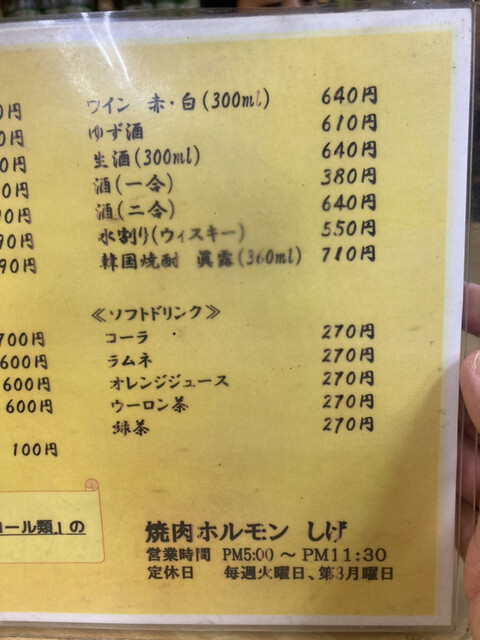 0円
0円
0円
0円
90円
90円
90円
700円
600円
600円
600円
100円
コール類』の
ワイン 赤・白(300ml) 640円
ゆず酒 610円
生酒(300ml) 640円
酒(一合) 380円
酒(二合) 640円
水割り(ウィスキー) 550円
韓国焼酎 眞露(360ml) 710円
≪ソフトドリンク≫
コーラ 270円
ラムネ 270円
オレンジジュース 270円
ウーロン茶 270円
緑茶 270円
焼肉ホルモン しげ
営業時間 PM5:00～PM11:30
定休日 毎週火曜日、第3月曜日